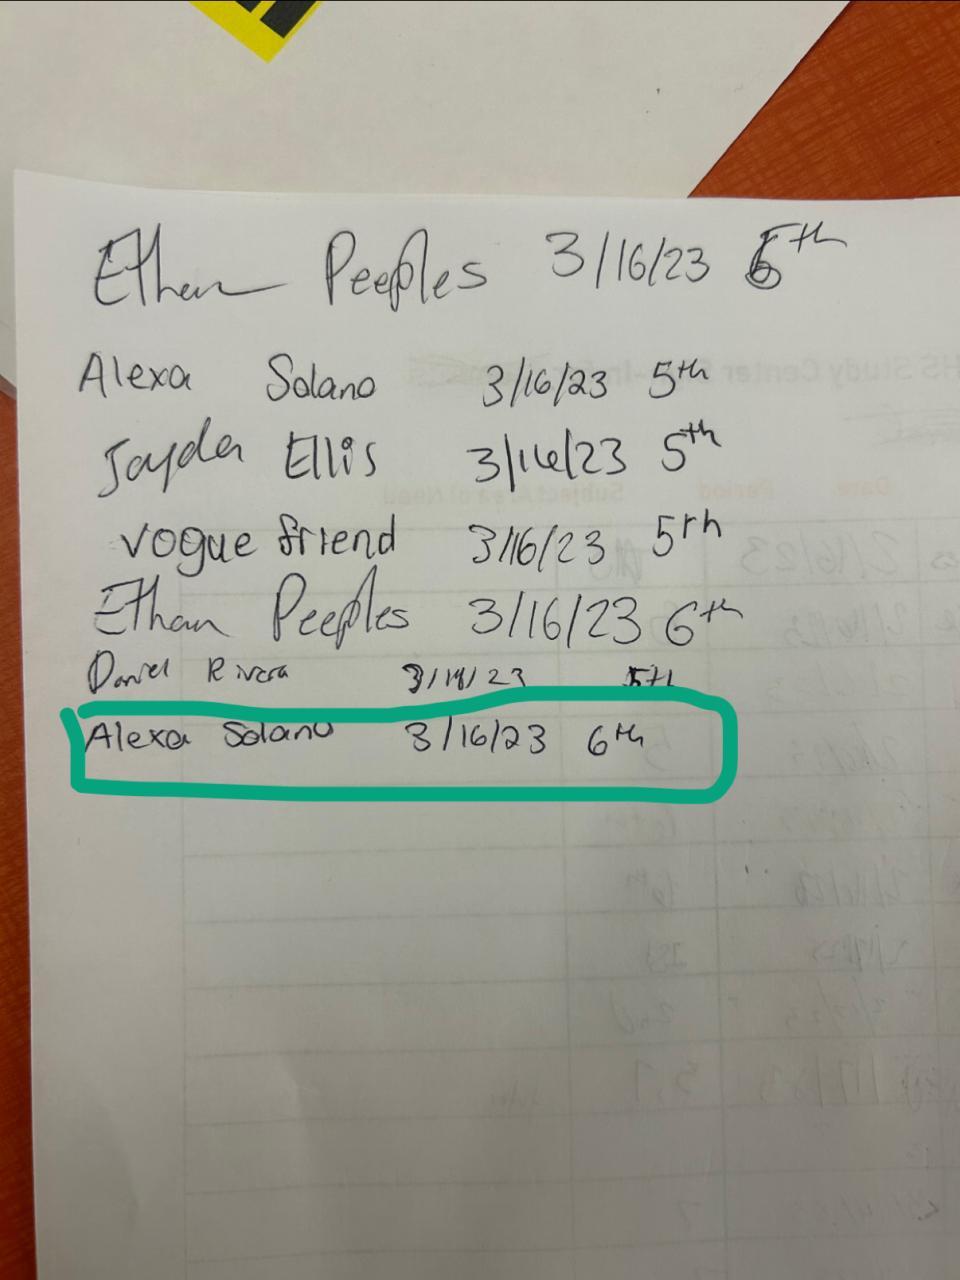 Ethan Peeples 3/16/23 5th
Alexa Solano 3/16/23 5th
Jayden Ellis 3/16/23 5th
vogue friend 3/16/23 5th
Ethan Peeples 3/16/23 6th
Daniel Rivera 23 5th
Alexa Solano 3/16/23 6th